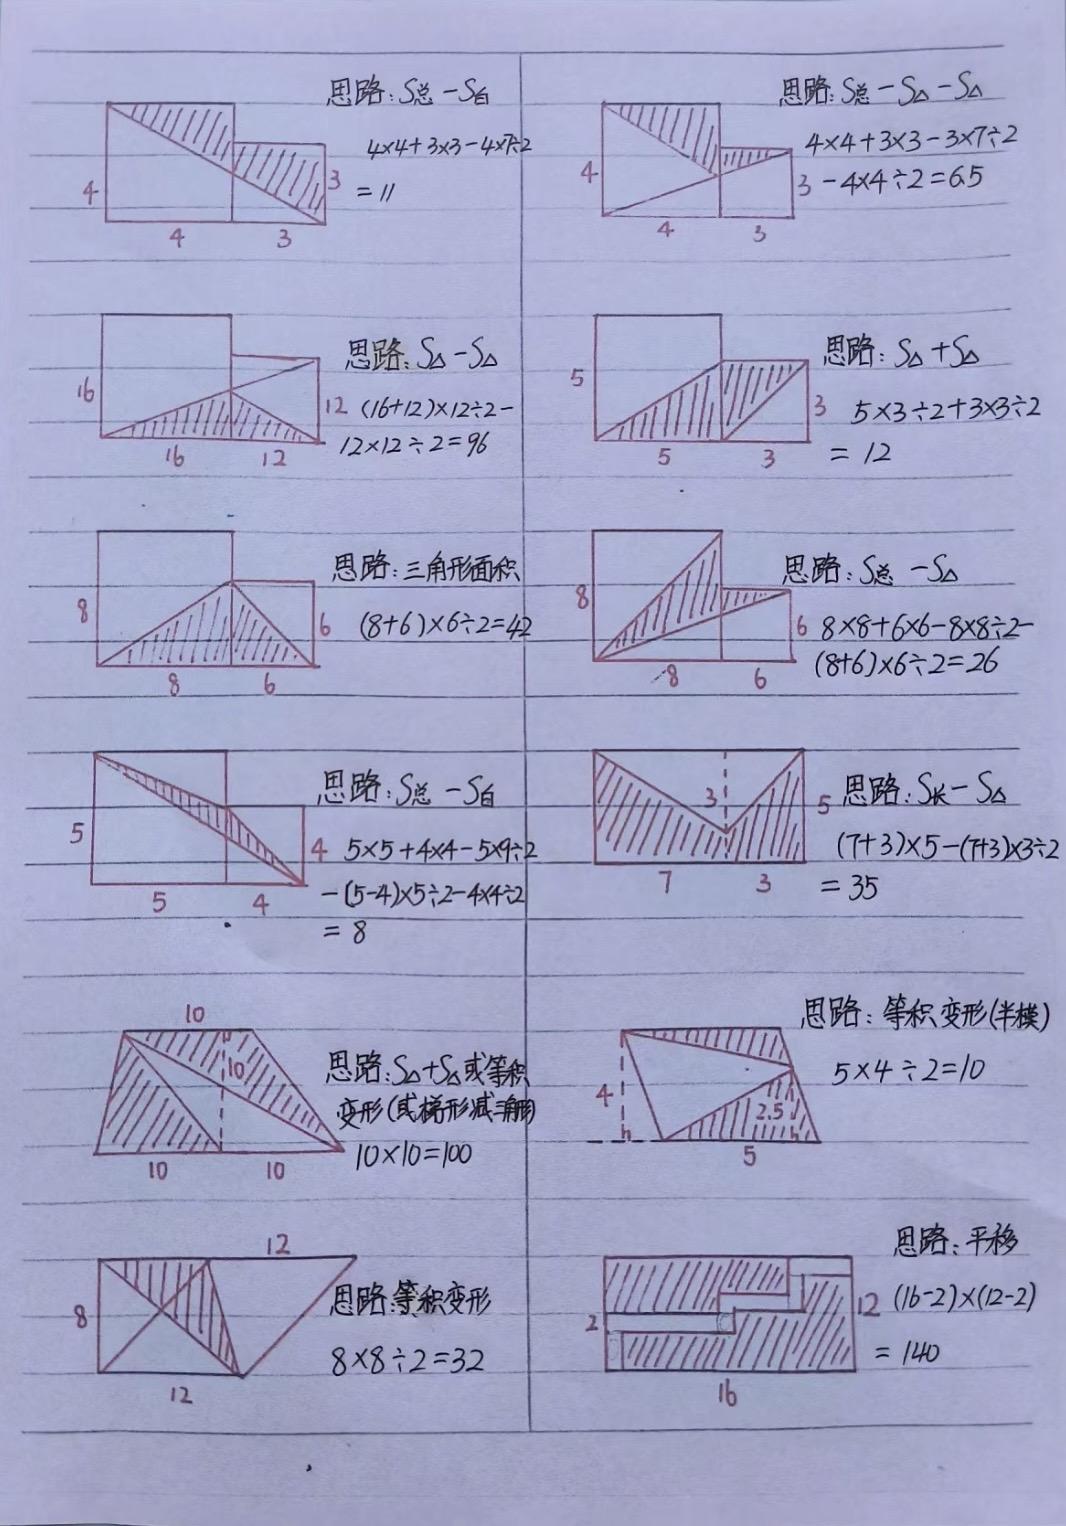 思路:S总-S白
4×4+3×3-4×7÷2
=11
4
3
4
3
思路:S总-S△-S△
4×4+3×3-3×7÷2
-4×4÷2=6.5
4
3
4
3
思路:S△-S△
(16+12)×12÷2-
12×12÷2=96
16
12
16
12
思路:S△+S△
5×3÷2+3×3÷2
=12
5
3
5
3
思路:三角形面积
(8+6)×6÷2=42
8
6
8
6
思路:S总-S△
8×8+6×6-8×8÷2-
(8+6)×6÷2=26
8
6
8
6
思路:S总-S白
5×5+4×4-5×9÷2
-(5-4)×5÷2-4×4÷2
=8
5
4
5
4
思路:S长-S△
(7+3)×5-(7+3)×3÷2
=35
3
5
7
3
10
10
思路:S△+S△或等积
变形(或梯形减三角形)
10×10=100
10
10
思路:等积变形(半模)
5×4÷2=10
4
2.5
5
12
思路:等积变形
8
8×8÷2=32
12
思路:平移
(16-2)×(12-2)
=140
2
12
16